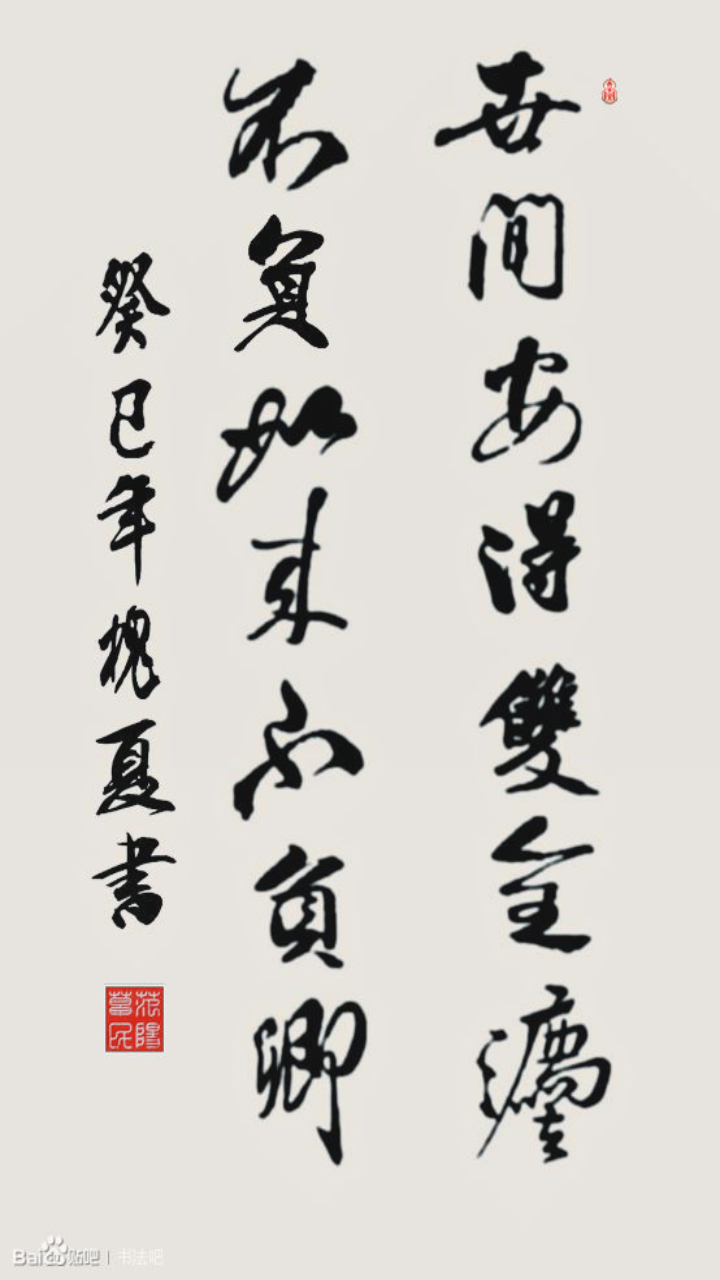 世間安得雙全灋
不負如来不負卿
癸巳年槐夏書
范陽
Baidu贴吧 | 书法吧